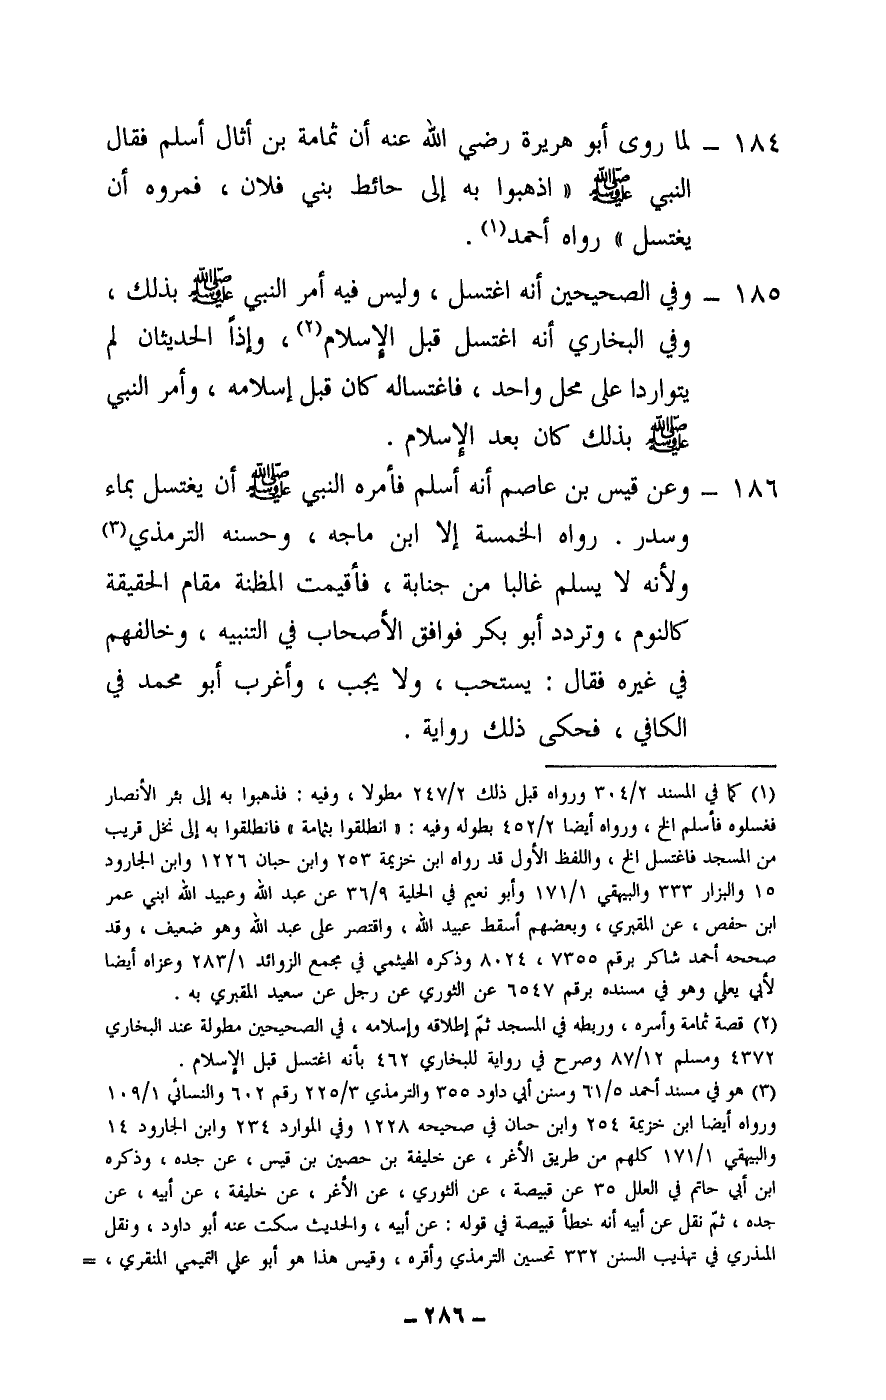 ١٨٤ – لما روى أبو هريرة رضي الله عنه أن ثمامة بن أثال أسلم فقال
النبي ﷺ « اذهبوا به إلى حائط بني فلان ، فمروه أن
يغتسل » رواه أحمد(١) .
١٨٥ – وفي الصحيحين أنه اغتسل ، وليس فيه أمر النبي ﷺ بذلك ،
وفي البخاري أنه اغتسل قبل الإسلام(٢) ، وإذاً الحديثان لم
يتواردا على محل واحد ، فاغتساله كان قبل إسلامه ، وأمر النبي
ﷺ بذلك كان بعد الإسلام .
١٨٦ – وعن قيس بن عاصم أنه أسلم فأمره النبي ﷺ أن يغتسل بماء
وسدر . رواه الخمسة إلا ابن ماجه ، وحسنه الترمذي(٣)
ولأنه لا يسلم غالبا من جنابة ، فأقيمت المظنة مقام الحقيقة
كالنوم ، وتردد أبو بكر فوافق الأصحاب في التنبيه ، وخالفهم
في غيره فقال : يستحب ، ولا يجب ، وأغرب أبو محمد في
الكافي ، فحكى ذلك رواية .
(١) كما في المسند ٣٠٤/٢ ورواه قبل ذلك ٢٤٧/٢ مطولا ، وفيه : فذهبوا به إلى بئر الأنصار
فغسلوه فأسلم الخ ، ورواه أيضا ٤٥٢/٢ بطوله وفيه : « انطلقوا بثمامة » فانطلقوا به إلى نخل قريب
من المسجد فاغتسل الخ ، واللفظ الأول قد رواه ابن خزيمة ٢٥٣ وابن حبان ١٢٢٦ وابن الجارود
١٥ والبزار ٣٣٣ والبيهقي ١٧١/١ وأبو نعيم في الحلية ٣٦/٩ عن عبد الله وعبيد الله ابني عمر
ابن حفص ، عن المقبري ، وبعضهم أسقط عبيد الله ، واقتصر على عبد الله وهو ضعيف ، وقد
صححه أحمد شاكر برقم ٧٣٥٥ ، ٨٠٢٤ وذكره الهيثمي في مجمع الزوائد ٢٨٣/١ وعزاه أيضا
لأبي يعلى وهو في مسنده برقم ٦٥٤٧ عن الثوري عن رجل عن سعيد المقبري به .
(٢) قصة ثمامة وأسره ، وربطه في المسجد ثمّ إطلاقه وإسلامه ، في الصحيحين مطولة عند البخاري
٤٣٧٢ ومسلم ٨٧/١٢ وصرح في رواية للبخاري ٤٦٢ بأنه اغتسل قبل الإسلام .
(٣) هو في مسند أحمد ٦١/٥ وسنن أبي داود ٣٥٥ والترمذي ٢٢٥/٣ رقم ٦٠٢ والنسائي ١٠٩/١
ورواه أيضا ابن خزيمة ٢٥٤ وابن حبان في صحيحه ١٢٢٨ وفي الموارد ٢٣٤ وابن الجارود ١٤
والبيهقي ١٧١/١ كلهم من طريق الأغر ، عن خليفة بن حصين بن قيس ، عن جده ، وذكره
ابن أبي حاتم في العلل ٣٥ عن قبيصة ، عن الثوري ، عن الأغر ، عن خليفة ، عن أبيه ، عن
جده ، ثمّ نقل عن أبيه أنه خطأ قبيصة في قوله : عن أبيه ، والحديث سكت عنه أبو داود ، ونقل
المنذري في تهذيب السنن ٣٣٢ تحسين الترمذي وأقره ، وقيس هذا هو أبو علي التميمي المنقري ، =
– ٢٨٦ –